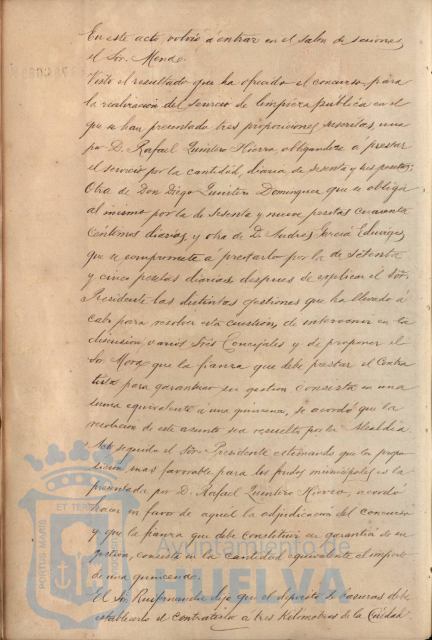 En este acto volvió á entrar en el salon de sesiones,
el Sor. Mendo.
Visto el resultado que ha ofrecido el concurso para
la realización del servicio de limpieza pública en el
que se han presentado tres proposiciones suscritas, una
por D. Rafael Quintero Hierro, obligandose a prestar
el servicio por la cantidad, diaria de sesenta y tres pesetas;
Otra de Don Diego Quintero Dominguez que se obliga
al mismo por la de setenta y nueve pesetas cuarenta
céntimos diarias, y otra de D. Andres Garcia
que se compromete a prestarlo por la de setenta
y cinco pesetas diarias, despues de explicar el Sor.
Presidente las distintas gestiones que ha llevado á
cabo para resolver esta cuestión, de intervenir en la
discusión varios Sres Concejales y de proponer el
Sor. Mora que la fianza que debe prestar el Contra
tista para garantizar su gestion consista en una
suma equivalente a una quincena, se acordó que la
resolución de este asunto sea resuelto por la Alcaldia.
Acto seguido el Sor. Presidente estimando que la propo
sicion mas favorable para los fondos municipales es la
presentada por D. Rafael Quintero Hierro, acordó
hacer en favor de aquél la adjudicación del concurso
y que la fianza que debe constituir en garantia de su
gestión, consista en la cantidad equivalente al importe
de una quincena.
El Sr. dijo que el deposito de basuras debe
establecerlo el contratista a tres Kilometros de la Ciudad
PORTUS MARIS ET TERRÆ CUSTODIA
Ayuntamiento de
HUELVA